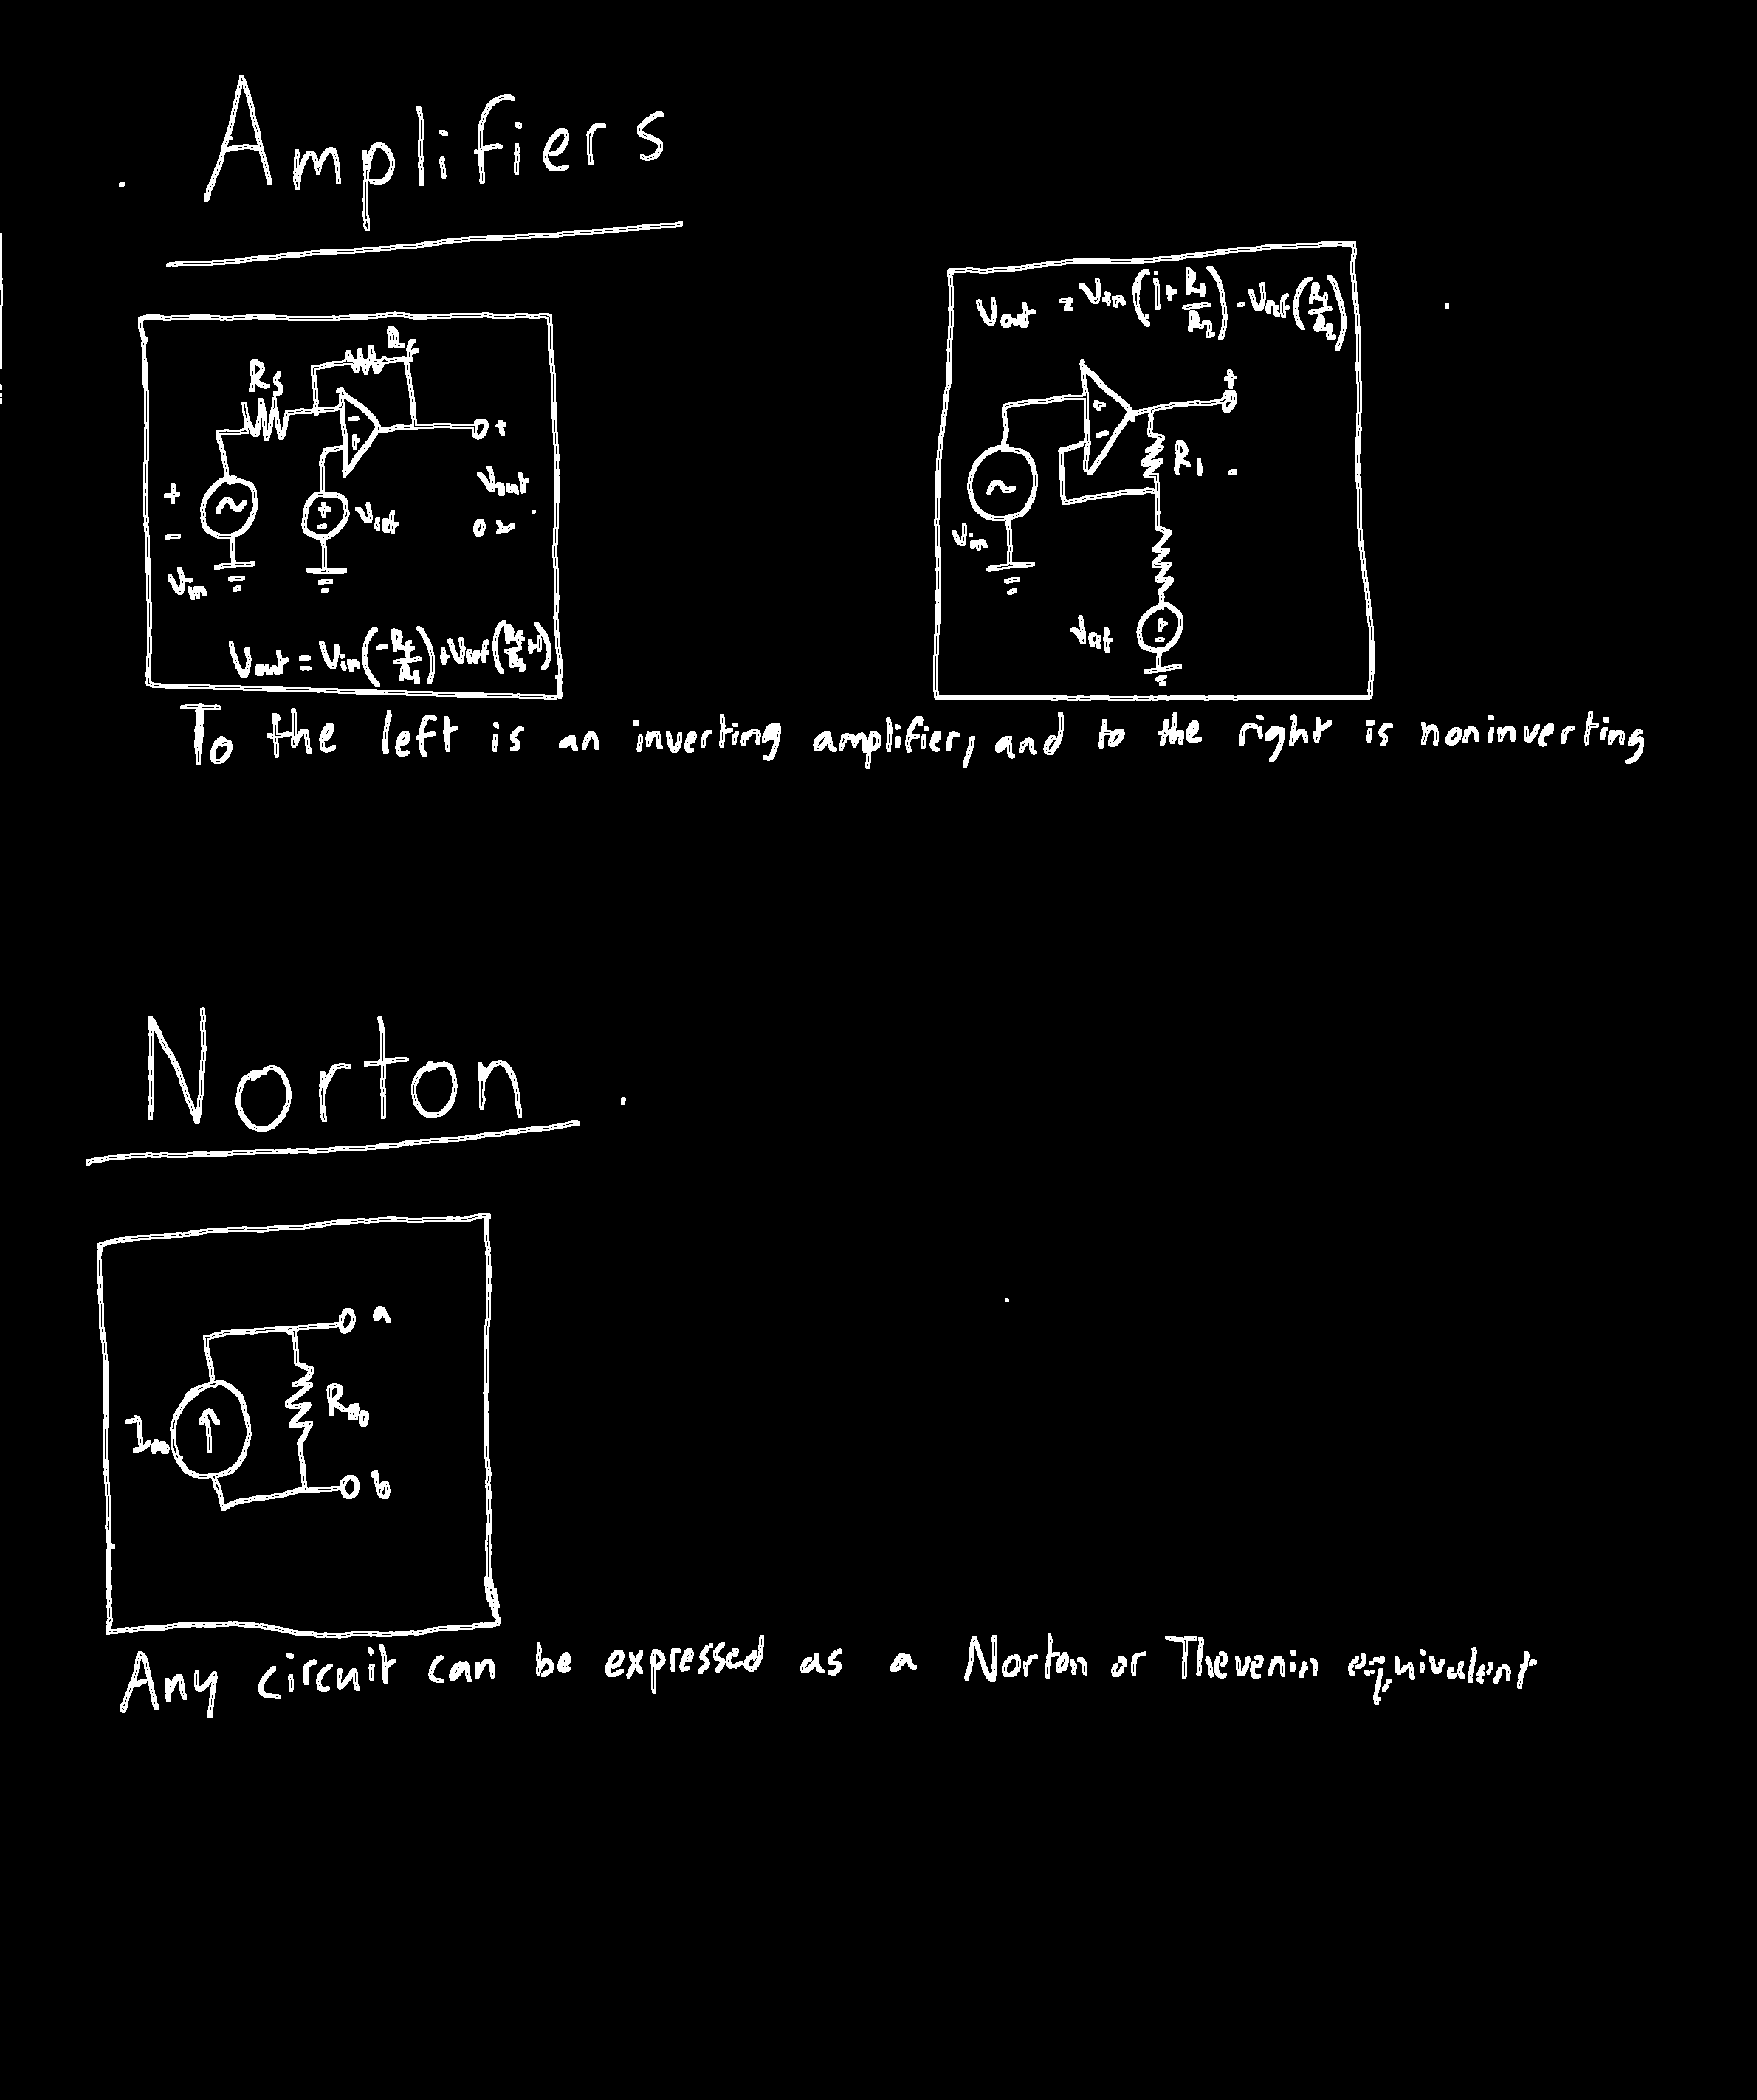 Amplifiers
Rf
Rs
Vref
Vout
Vin
Vout = Vin(-Rf/Rs)+Vref(Rf/Rs+1)
Vout = Vin(1+R1/R2)-Vref(R1/R2)
R1
Vin
Vref
To the left is an inverting amplifier, and to the right is noninverting
Norton
a
b
Any circuit can be expressed as a Norton or Thevenin equivalent